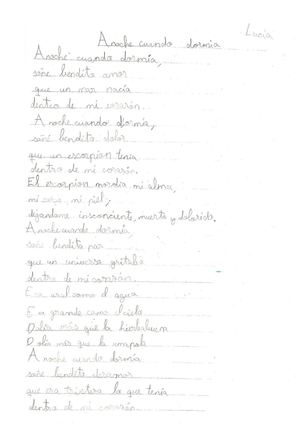 Lucía
Anoche cuando dormía
Anoche cuando dormía,
soñé bendito amor
que un mar nacía
dentro de mi corazón.
Anoche cuando dormía,
soñé bendito dolor
que un escorpion tenía
dentro de mi corazón.
El escorpion mordía mi alma,
mi cara, mi piel,
dejandome insconciente, muerta y dolorida.
Anoche cuando dormía
soñé bendita paz
que un universo gritaba
dentro de mi corazón.
Era azul como el agua
Era grande como el cielo
Dolía más que la hierbabuena
Dolía más que la
Anoche cuando dormía
soñé bendito desamor
que era tristeza la que tenía
dentro de mi corazón.